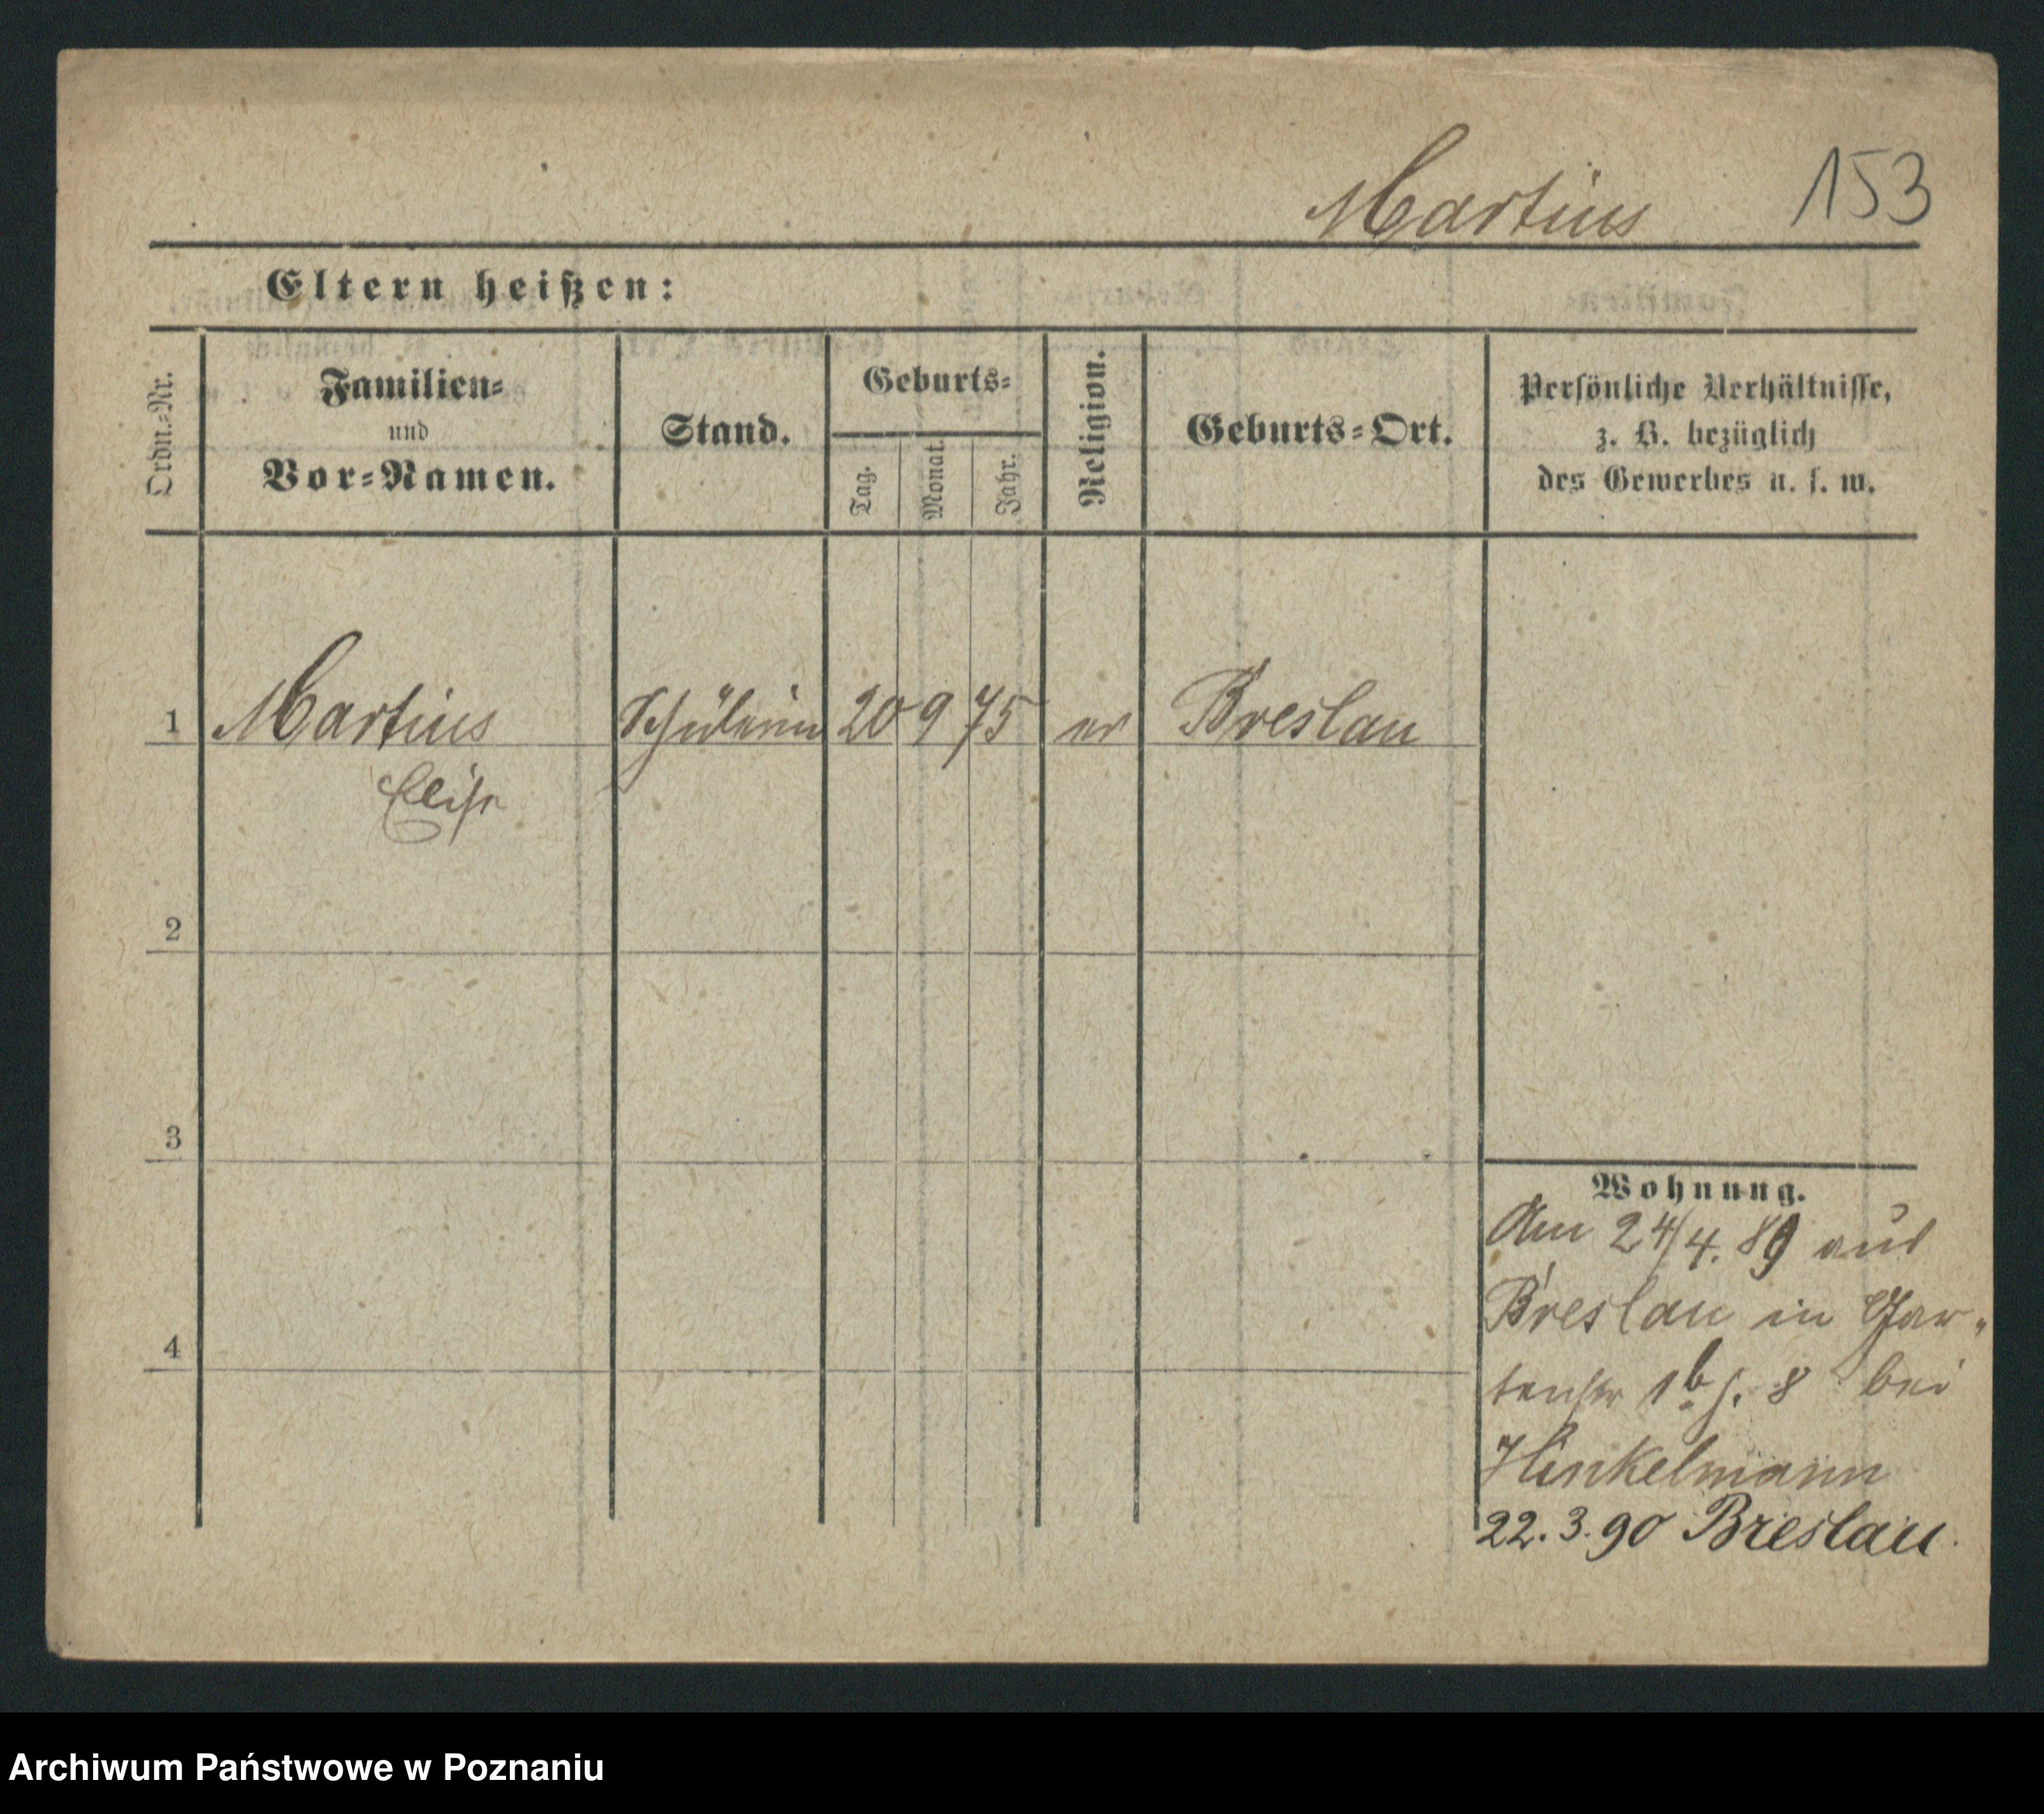 Martius 153
Eltern heißen:
Ordn.=Nr.
Familien=
und
Vor=Namen.
Stand.
Geburts=
Tag.
Monat.
Jahr.
Religion.
Geburts=Ort.
Persönliche Verhältnisse,
z. B. bezüglich
des Gewerbes u. s. w.
1 Martius Schülerin 20 9 75 ev Breslau
Elise
2
3
4
Wohnung.
Am 24/4. 89 aus
Breslau in Gar-
tenstr 1b 8 bei
Hinkelmann
22. 3. 90 Breslau.
Archiwum Państwowe w Poznaniu